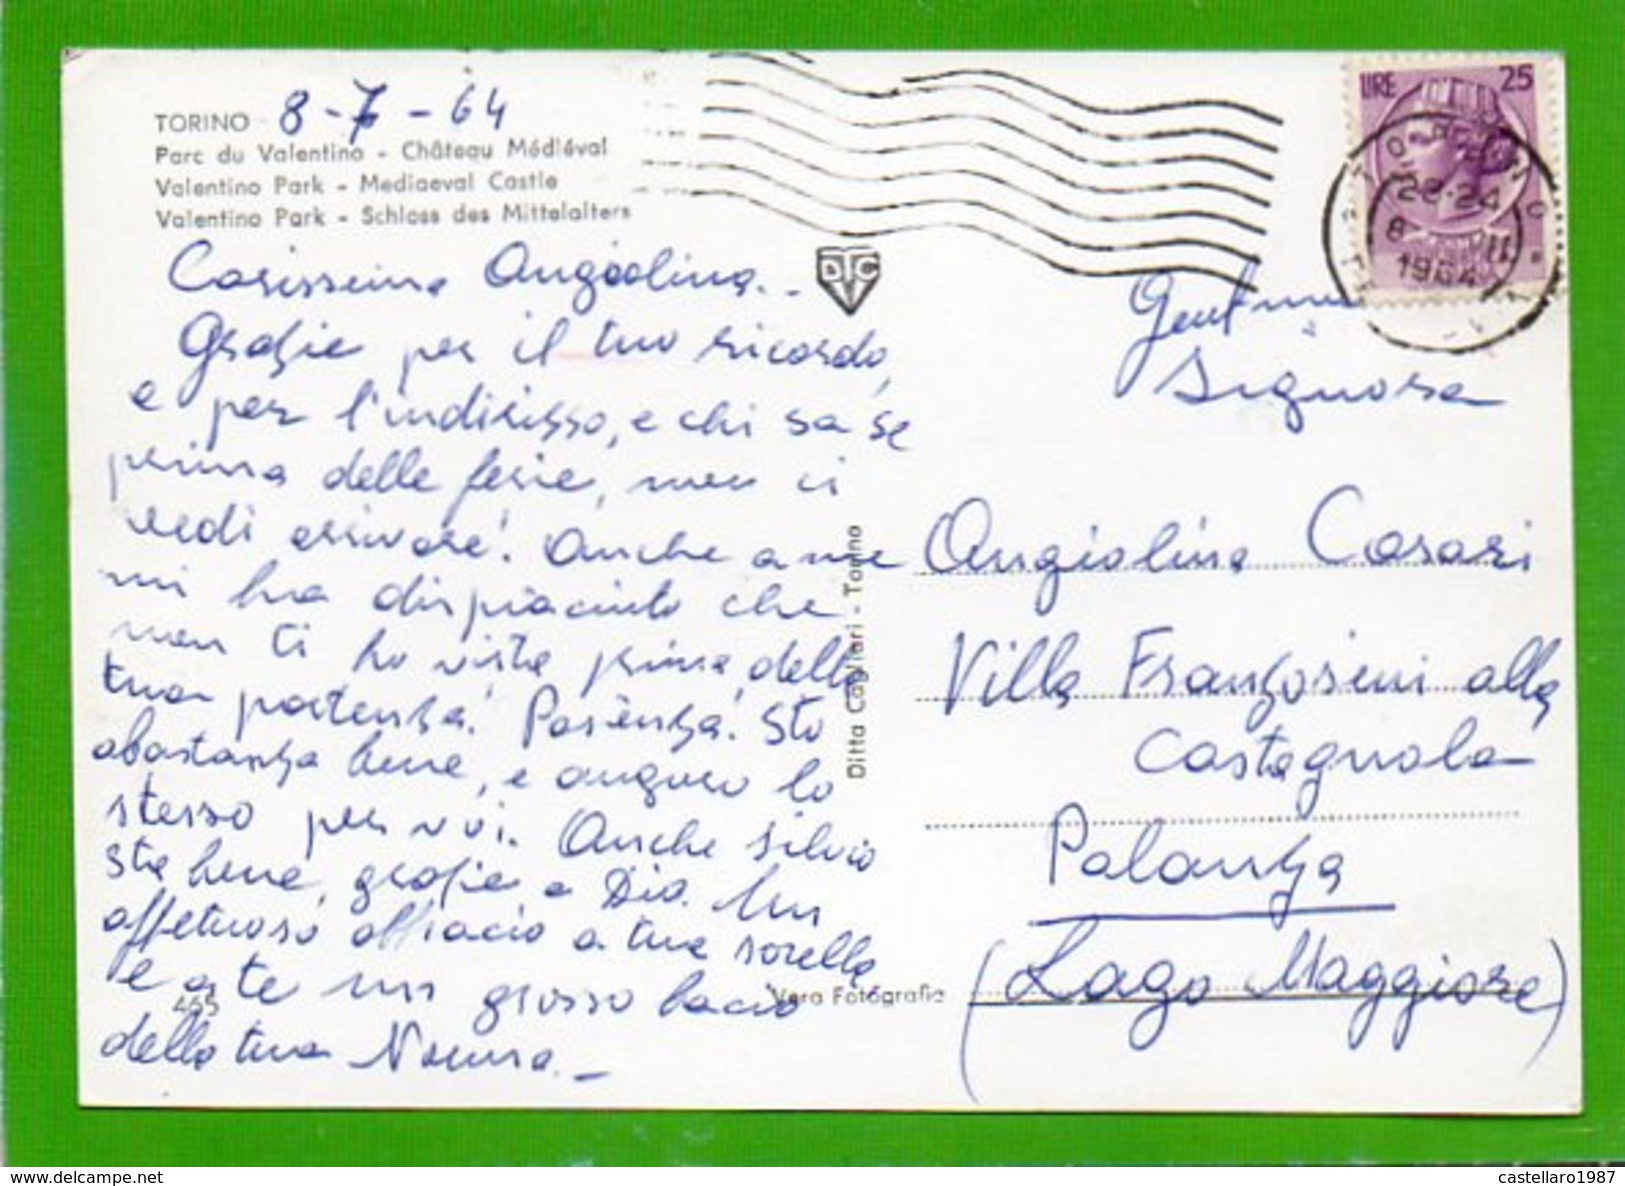 TORINO 8-7-64
Parc du Valentino - Château Médiéval
Valentino Park - Mediaeval Castle
Valentino Park - Schloss des Mittelalters
Carissima Angiolina.-
Grazie per il tuo ricordo,
e per l'indirisso, e chi sa se
prima delle ferie, non ci
vedi arrivare! Anche a me
mi ha dispiaciuto che
non ti ho vista prima della
tua partenza! Pasienza! Sto
abastanza bene, e auguro lo
stesso per voi. Anche Silvio
sta bene, grazie a Dio. Un
affetuoso abbracio a tua sorella
e a te un grosso bacio
della tua Nonna.-
465
DTC
Ditta Cagliari - Torino
Vera Fotografia
LIRE 25
TORINO
22-24
8 VII
1964
Gent.ma
Signora
Angiolina Casari
Villa Franzosini alla
Castagnola
Palanza
(Lago Maggiore)
delcampe.net
castellaro1987